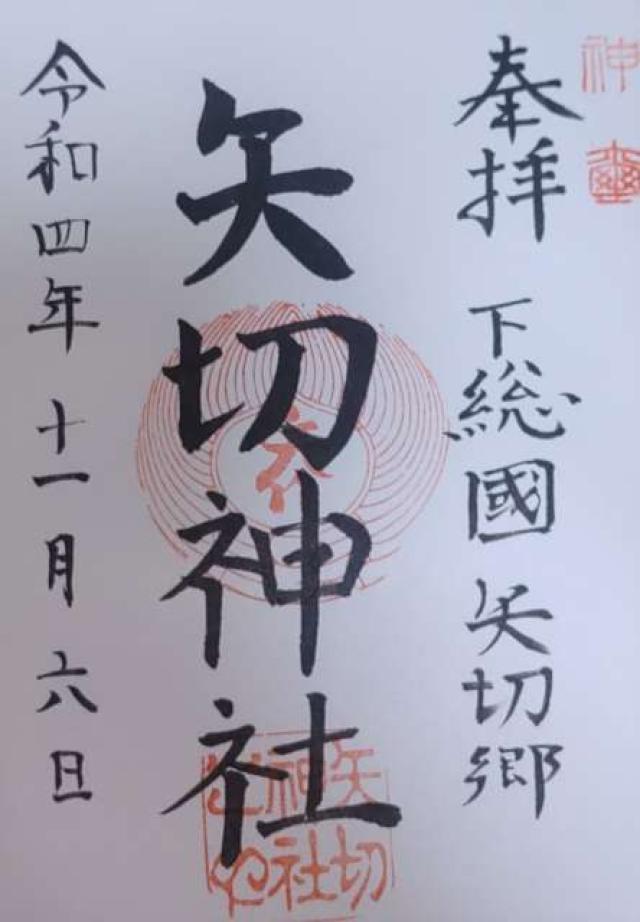 神璽
奉拝 下総國 矢切郷
矢切神社
令和四年 十一月 六日
矢切
神社